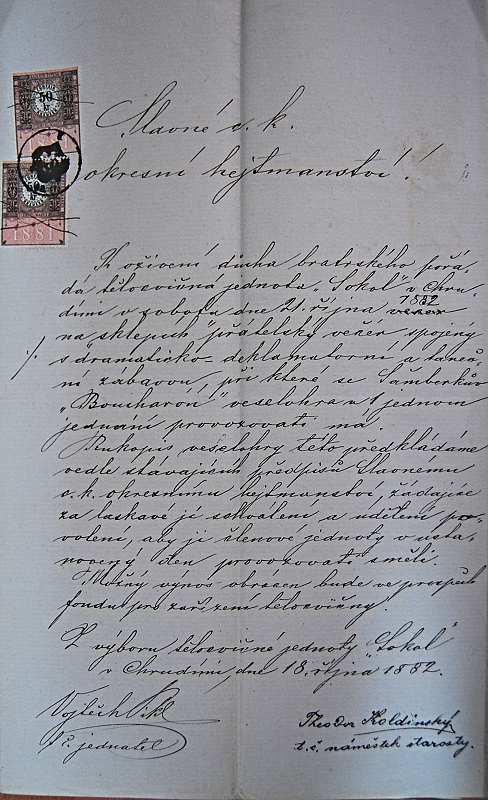 50
kr
1881
Slavné c. k.
okresní hejtmanství!
K oživení ducha bratrského pořá-
dá tělocvičná jednota „Sokol" v Chru-
dimi v sobotu dne 21. října 1882 večer
na sklepích „přátelský večer spojený
·/. s dramaticko-deklamatorní a taneč-
ní zábavou, při které se Šamberkův
„Boucharón" veselohra v 1 jednom
jednání provozovati má.
Rukopis veselohry této předkládáme
vedle stávajících předpisů Slavnému
c. k. okresnímu hejtmanství, žádajíce
za laskavé její schválení a udělení po-
volení, aby ji členové jednoty v usta-
novený den provozovati směli.
Možný výnos obrácen bude ve prospěch
fondu pro zařízení tělocvičny.
Z výboru tělocvičné jednoty „Sokol"
v Chrudimi, dne 18. října 1882.
Vojtěch
t. č. jednatel
Theodor Koldinský
t. č. náměstek starosty.